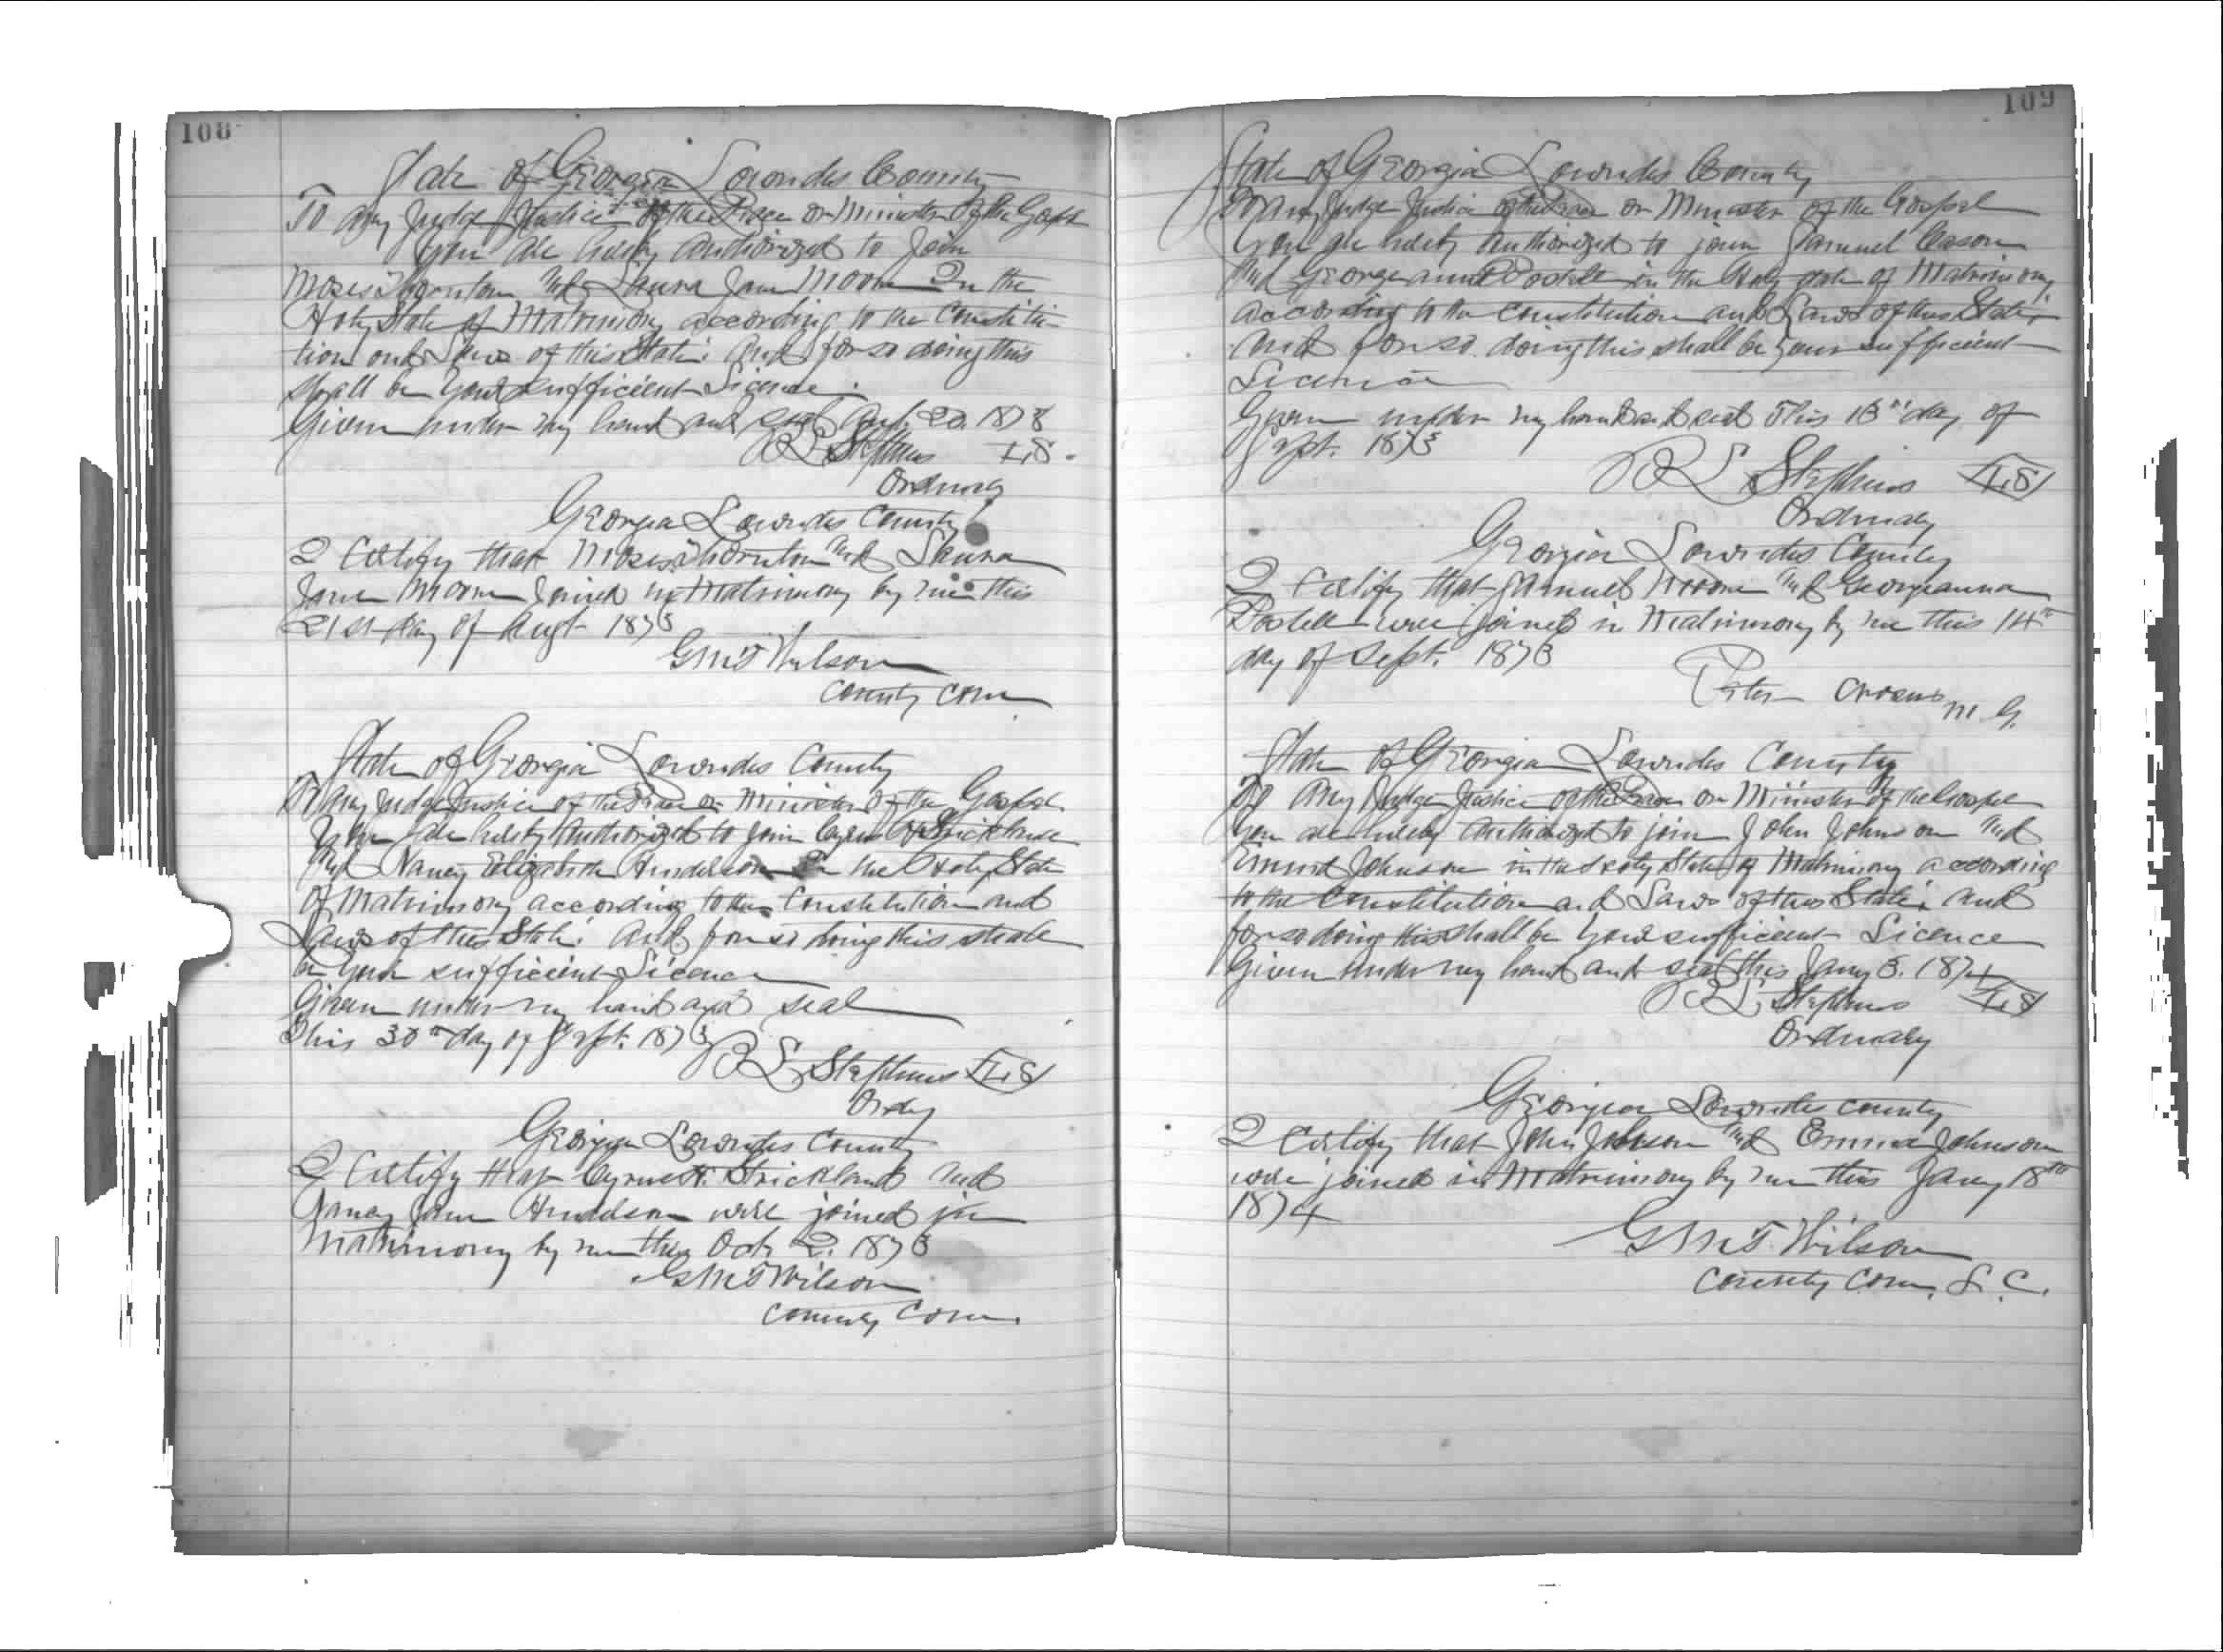 108
State of Georgia Lowndes County
To any Judge Justice of the Peace or Minister of the Gospl
You are hereby authorized to Join
Moses Thornton And Laura Jane Moore In the
Holy State of Matrimony according to the Constitu-
tion and Laws of this State: And for so doing this
shall be your sufficient Licence.
Given under my hand and seal Aug. 20. 1873
R L Stephens L.S.
Ordinary
Georgia Lowndes County
I Certify that Moses Thornton And Laura
Jane Moore Joined in Matrimony by me this
21st day of Augt 1873
G M T Wilson
County Com
State of Georgia Lowndes County
To Any Judge Justice of the Peace or Minister of the Gospel
You are hereby Authorized to join Cyrus H Strickland
And Nancy Elizabeth Henderson In the Holy State
of Matrimony according to the Constitution and
Laws of this State: And for so doing this shall
be your sufficient Licence
Given under my hand and seal
This 30th day of Sept. 1873
R L Stephens L.S
Ordy
Georgia Lowndes County
I Certify that H. Strickland And
Nancy Jane were joined in
Matrimony by me this Oct 2. 1873
G M T Wilson
County Com.
109
State of Georgia Lowndes County
To Any Judge Justice of the Peace or Minister of the Gospel
You are hereby Authorized to join Samuel Cason
And Georgeanna Postell in the Holy state of Matrimony
according to the Constitution and Laws of this State;
And for so doing this shall be your sufficient
Licence
Given under my hand and seal This 13th day of
Sept. 1873
R L Stephens L.S
Ordinary
Georgia Lowndes County
I Certify that Samuel And Georgeanna
Postell were joined in Matrimony by me this 14th
day of Sept. 1873
Peter M G.
State of Georgia Lowndes County
To Any Judge Justice of the Peace or Minister of the Gospel
You are hereby Authorized to join John Johnson And
Emma Johnson in the Holy State of Matrimony according
to the Constitution and Laws of this State; And
for so doing this shall be your sufficient Licence
Given under my hand and seal this Jany 3. 1874
R L Stephens L.S
Ordinary
Georgia Lowndes County
I Certify that John Johnson And Emma Johnson
were joined in Matrimony by me this Jany 18th
1874
G M T. Wilson
County Com. L. C.